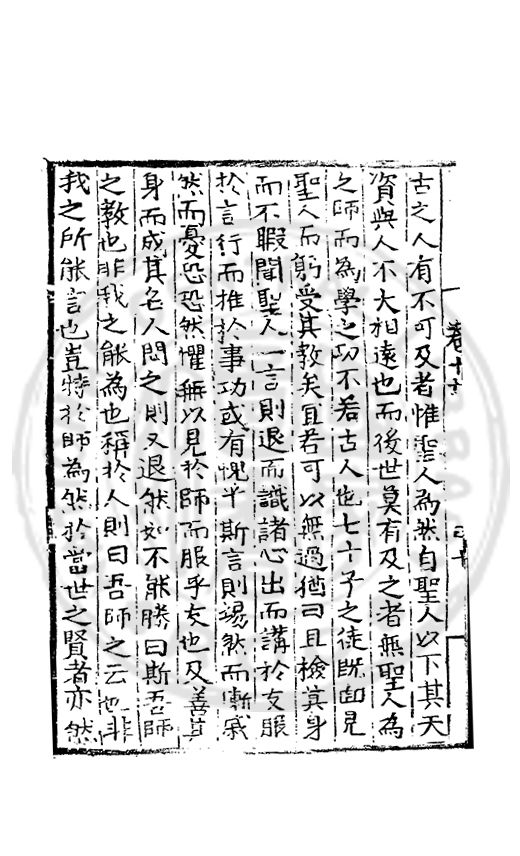 古之人有不可及者惟聖人為然自聖人以下其天
資與人不大相遠也而後世莫有及之者無聖人為
之師而為學之功不若古人也七十子之徒既面見
聖人而躬受其教矣宜若可以無過猶曰且檢其身
而不暇聞聖人一言則退而識諸心出而講於友服
於言行而推於事功或有愧乎斯言則惕然而慚戚
然而憂恐恐然懼無以見於師而服乎友也及善其
身而成其名人問之則又退然如不能勝曰斯吾師
之教也非我之能為也稱於人則曰吾師之云也非
我之所能言也豈特於師為然於當世之賢者亦然